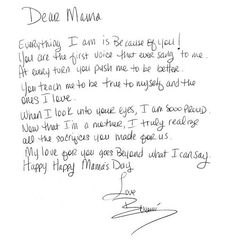 Dear Mama
Everything I am is Because of you!
You are the first voice that ever sang to me.
At every turn you push me to be better.
You teach me to be true to myself and the
ones I love.
When I look into your eyes, I am sooo proud.
Now that I'm a mother, I truly realize
all the sacrifices you made for us.
My love for you goes Beyond what I can say.
Happy Happy Mama's Day
Love